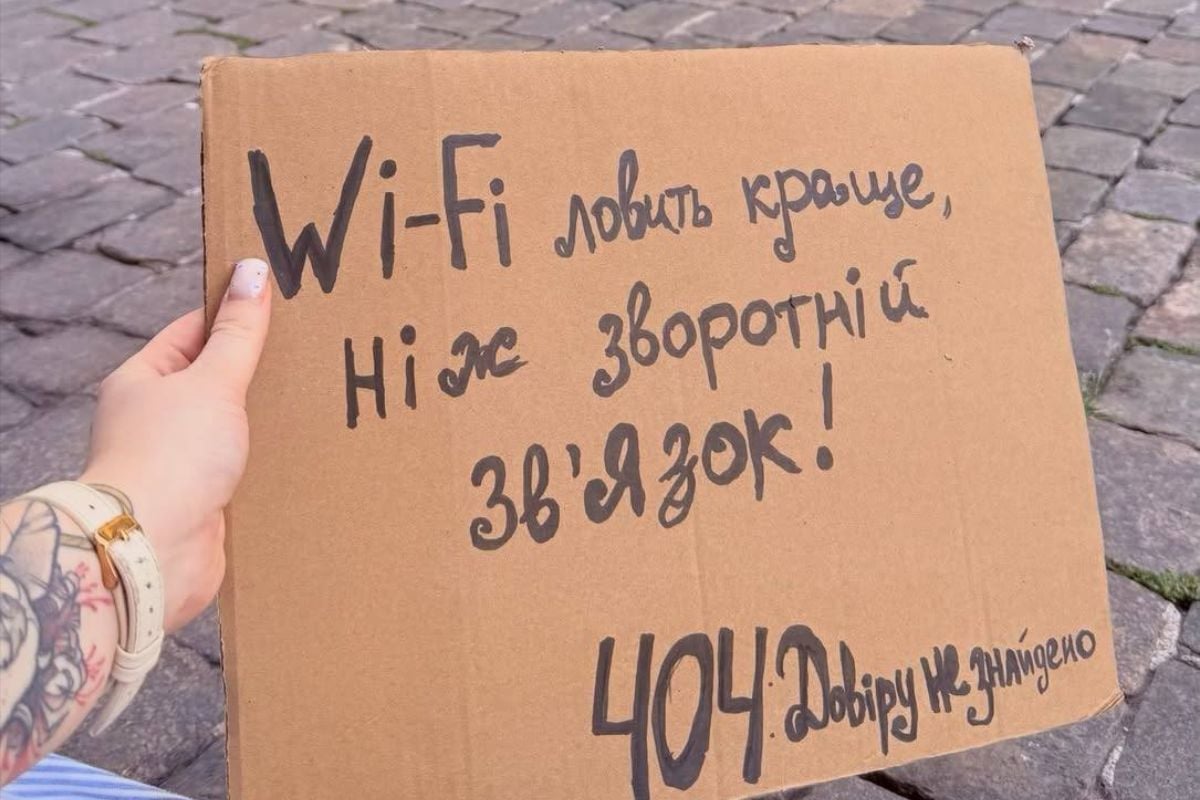 Wi-Fi ловить краще,
ніж зворотній
зв'язок!
404: Довіру не знайдено